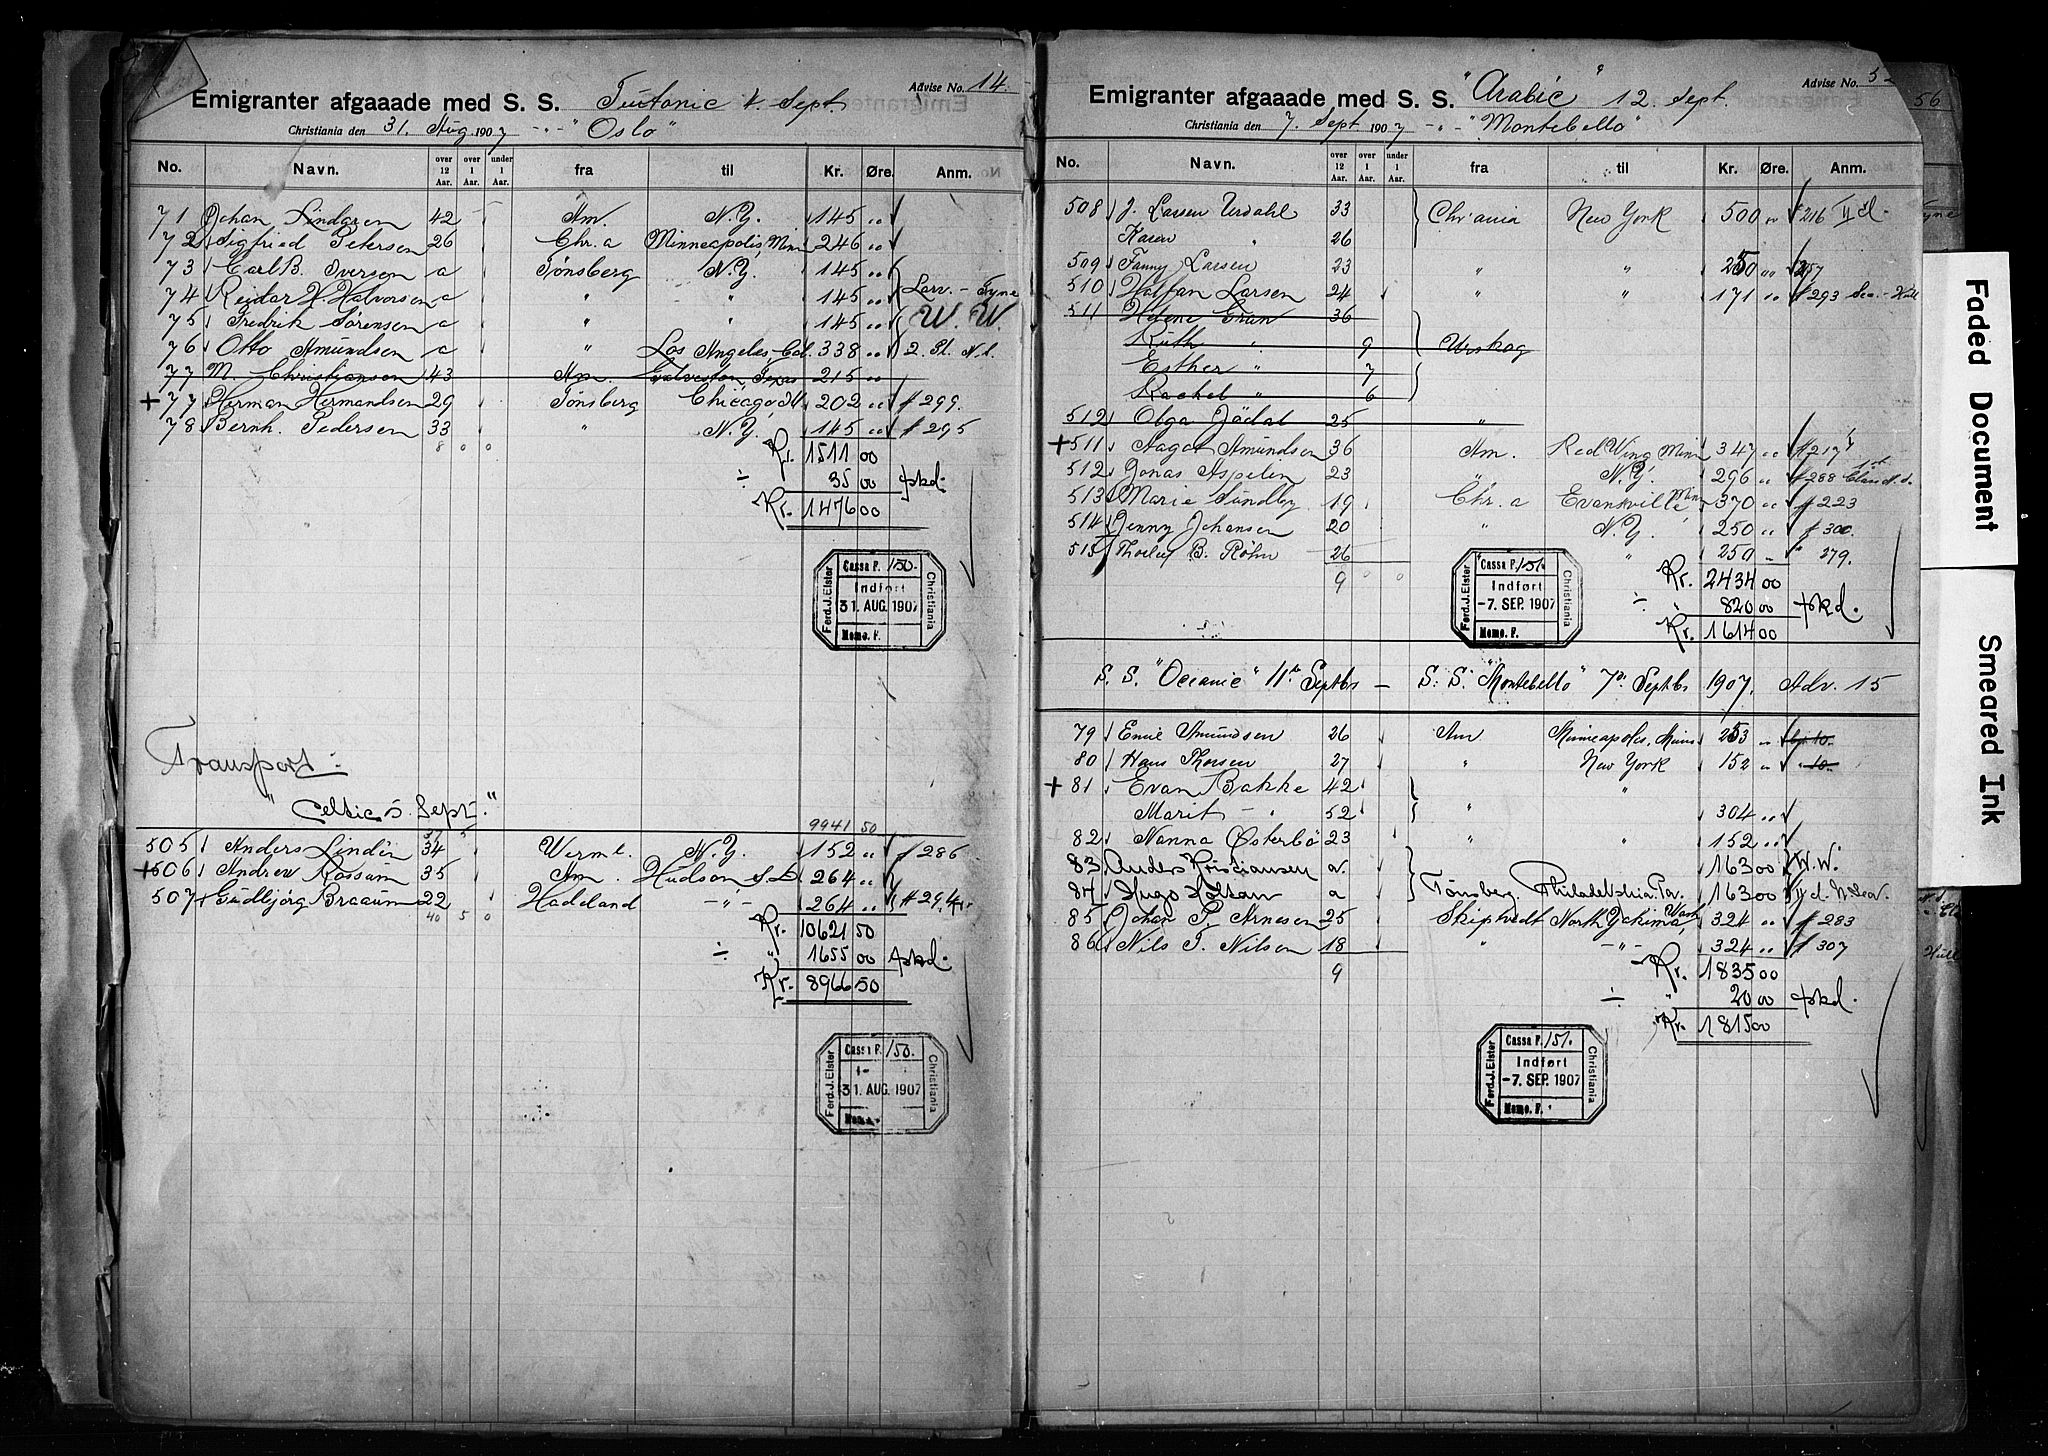 Advise No. 14.
Emigranter afgaaade med S. S. Teutonic 4. Sept
Christiania den 31. Aug 1907 -"- "Oslo"
No. Navn. over 12 Aar. over 1 Aar. under 1 Aar. fra til Kr. Øre. Anm.
71 Johan Lindgren 42 Am. N.Y. 145 "
72 Sigfried Petersen 26 Chr.a Minneapolis, Minn 246 "
73 Carl B. Iversen a Tønsberg N.Y. 145 "
74 Reidar H. Halvorsen a " " 145 " Larv. - Tyne
75 Fredrik Sørensen a " " 145 " W. W.
76 Otto Amundsen a " Los Angeles, Cal. 338 " 2. Pl. N.l.
77 M. Christiansen 43 Am. Galveston, Texas 215 "
+ 77 Herman Hermandsen 29 Tønsberg Chicago Ill 202 " # 299.
78 Bernh. Pedersen 33 " N.Y. 145 " # 295
8 " 0 Kr. 1511 00
÷ 35 00 pkd.
Kr. 1476 00
Ferd. J. Elster Cassa F. 150. Indført 31. AUG. 1907 Memo. F. Christiania
Transport:
"Celtic 5. Sept." 9941 50
37 5
505 Anders Lindén 34 Werml. N.Y. 152 " # 286
+506 Andrew Rossum 35 Am. Hudson S.D. 264 "
507 Gudbjørg Braaum 22 Hadeland -"- 264 " # 294
40 5 0 Kr. 10621 50
÷ " 1655 00 pkd.
Kr. 8966 50
Ferd. J. Elster Cassa F. 150. 31. AUG. 1907 Christiania
Advise No. 5
Emigranter afgaaade med S. S. "Arabic" 12 Sept.
Christiania den 7. Sept 1907 -"- "Montebello"
No. Navn. over 12 Aar. over 1 Aar. under 1 Aar. fra til Kr. Øre. Anm.
508 J. Larsen Urdahl 33 Chr'ania New York 500 " # 216 II d.
Karen " 26
509 Fanny Larsen 23 " " 250 " 257
510 Halfan Larsen 24 " " 171 " # 293
511 Helene Gran 36
Ruth " 9 Urskog
Esther " 7
Rachel " 6
512 Olga Jödal 25 "
+511 Aagot Amundsen 36 Am. Red Wing Minn 347 " # 217
512 Jonas Aspelen 23 " N.Y. 296 " # 288
513 Marie Sundby 19 Chr.a Evansville Minn 370 " # 223
514 Jenny Johansen 20 " N.Y. 250 " # 300.
515 Thorley B. Röhn 26 " 250 - " 279.
9 " 0 Kr. 2434 00
÷ 820 00 pkd.
Kr. 1614 00
Ferd. J. Elster Cassa F. 151. Indført -7. SEP. 1907 Memo. F. Christiania
S. S. "Oceanic" 11te Septbs - S. S. "Montebello" 7de Septbs 1907. Adv. 15
79 Emil Amundsen 26 Am Minneapolis, Minn 253 "
80 Hans Thorsen 27 " New York 152 " " 10.
+ 81 Evan Bakke 42 "
Marit - " 52 " 304 "
82 Nanna Østerbö 23 " " 152 "
83 Anders Kristiansen a. 163 00 W.W.
84 Hugo Holtan a Tönsberg Philadelphia Pa. 163 00
85 Johan P. Arnesen 25 Skiptvedt North Yakima, Wash 324 " # 283
86 Nils T. Nilsen 18 " -"- 324 " # 307
9 Kr. 1835 00
÷ " 20 00 pkd.
Kr. 1815 00
Ferd. J. Elster Cassa F. 151. Indført -7. SEP. 1907 Memo. F. Christiania
56
Faded Document
Smeared Ink